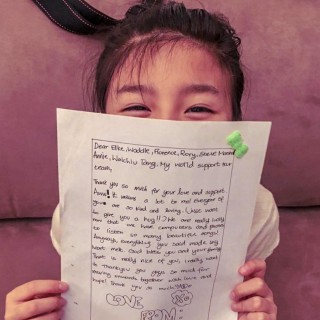 Dear Ellie, Waddle, Florence, Rory, Steve
Annie, Waichiu Tang, My world support
team,
Thank you so much for your love and support
It means a lot to me! Everyone of
are so kind and loving. I just want
to give you a hug!! We are really lucky
now that we have computers and phones
to listen so many beautiful songs!
everything you said made my
heart melt. God bless you and your family
That is really nice of you, I really want
to thank you guys so much for
sending moments together with love and
hope! Thank you so much!
LOVE
FROM: